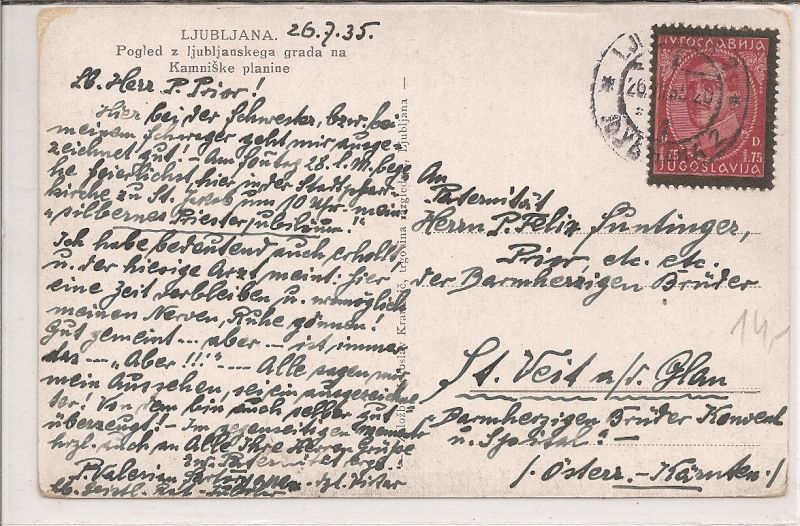 LJUBLJANA. 26.7.35.
Pogled z ljubljanskega grada na
Kamniške planine
Lb. Herr P. Prior!
Hier bei der Schwester, bzw. bei
meinem Schwager geht mir ausge-
zeichnet gut! - Am Sontag 28. l. M. bege-
he feierlichst hier in der Stadtpfarr-
kirche zu St. Jakob um 10 Uhr mein
"silbernes Priesterjubiläum!"
Ich habe bedeutend auch erholt
u. der hiesige Arzt meint hier
eine Zeit verbleiben u. womöglich
meinen Nerven, Ruhe gönnen!
Gut gemeint --- aber -- ist immer
das --- "Aber!!" --- Alle sagen mir
mein Aussehen, sei ein ausgezeichne-
ter! Von dem bin auch selber gut
überzeugt! - Im gegenseitigen
hrzl. auch an Alle Ihre Herren Grüße
P. Valerian
trgovina razglednic, Ljubljana
ЈУГОСЛАВИЈА
D.
1.75
JUGOSLAVIJA
26
An
Paternität
Herrn P. Felix Suntinger,
Prior, etc. etc.
der Barmherzigen Brüder
14,-
St. Veit a/d. Glan
Barmherzigen Brüder Konvent
u. Spital. -
/Österr. - Kärnten./